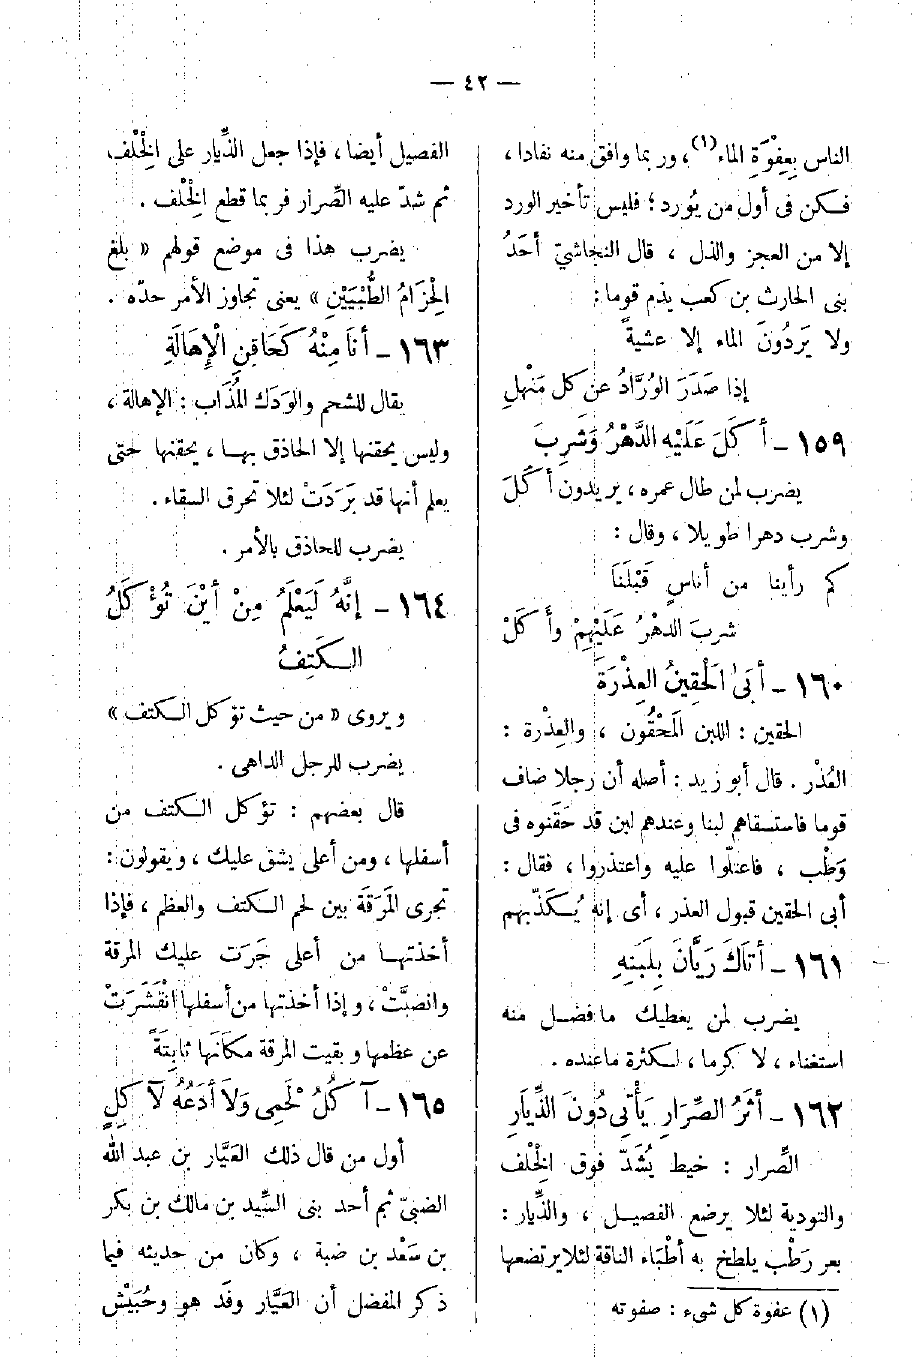 — ٤٢ —
الناس بِعِفْوَةِ الماء (١)، وربما وافق منه نفادا ،
فكن فى أول من يُورد ؛ فليس تأخير الورد
إلا من العجز والذل ، قال النجاشىّ أحَدُ
بنى الحارث بن كعب يذم قوما :
ولا يَرِدُونَ الماء إلا عشيةً
إذا صَدَرَ الوُرَّادُ عن كل مَنْهلِ
١٥٩ - أَكَلَ عَلَيْهِ الدَّهْرُ وَشَرِبَ
يضرب لمن طال عمره ، يريدون أكَلَ
وشرب دهرا طويلا ، وقال :
كم رأينا من أناسٍ قَبْلَنَا
شربَ الدهْرُ عَلَيْهِمْ وأَكَلْ
١٦٠ - أَبَى الْحَقِينُ الْعِذْرَةَ
الحقين : اللبن المَحْقُون ، والعِذْرة :
العُذْر . قال أبو زيد : أصله أن رجلا ضاف
قوما فاستسقاهم لبنا وعندهم لبن قد حَقَنوه فى
وَطْب ، فاعتلّوا عليه واعتذروا ، فقال :
أبى الحقين قبول العذر ، أى إنه يُكَذّبهم
١٦١ - أتَاكَ رَيَّانَ بِلَبَنِهِ
يضرب لمن يعطيك ما فضل منه
استغناء ، لا كرما ، لكثرة ما عنده .
١٦٢ - أَثَرُ الصِّرَارِ يَأْتِى دُونَ الذِّيَارِ
الصِّرار : خيط يُشَدّ فوق الْخِلْف
والتودية لئلا يرضع الفصيل ، والذِّيار :
بعر رَطْب يلطخ به أطْبَاء الناقة لئلا يرتضعها
(١) عفوة كل شىء : صفوته
الفصيل أيضا ، فإذا جعل الذِّيار على الْخِلْف
ثم شدّ عليه الصِّرار فربما قطع الْخِلْف .
يضرب هذا فى موضع قولهم « بلغ
الْحِزَامُ الطُّبْيَيْنِ » يعنى تجاوز الأمر حدّه .
١٦٣ - أَنَا مِنْهُ كَحَاقِنِ الْإِهَالَةِ
يقال للشحم والوَدَك المُذَاب : الإهالة ،
وليس يحقنها إلا الحاذق بها ، يحقنها حتى
يعلم أنها قد بَرَدَتْ لئلا تحرق السقاء .
يضرب للحاذق بالأمر .
١٦٤ - إنَّهُ لَيَعْلَمُ مِنْ أَيْنَ تُؤْكَلُ
الْكَتِفُ
ويروى « من حيث تؤكل الكتف »
يضرب للرجل الداهى .
قال بعضهم : تؤكل الكتف من
أسفلها ، ومن أعلى يشق عليك ، ويقولون :
تجرى المَرَقَة بين لحم الكتف والعظم ، فإذا
أخذتها من أعلى جَرَت عليك المرقة
وانصبَّتْ ، وإذا أخذتها من أسفلها انْقَشَرَتْ
عن عظمها وبقيت المرقة مكانَها ثابِتَةً
١٦٥ - آكُلُ لَحْمِى وَلاَ أَدَعُهُ لآكِلٍ
أول من قال ذلك العَيَّار بن عبد الله
الضبىّ ثم أحد بنى السِّيد بن مالك بن بكر
بن سَعْد بن ضبة ، وكان من حديثه فيما
ذكر المفضل أن العَيَّار وفَد هو وحُبَيْش